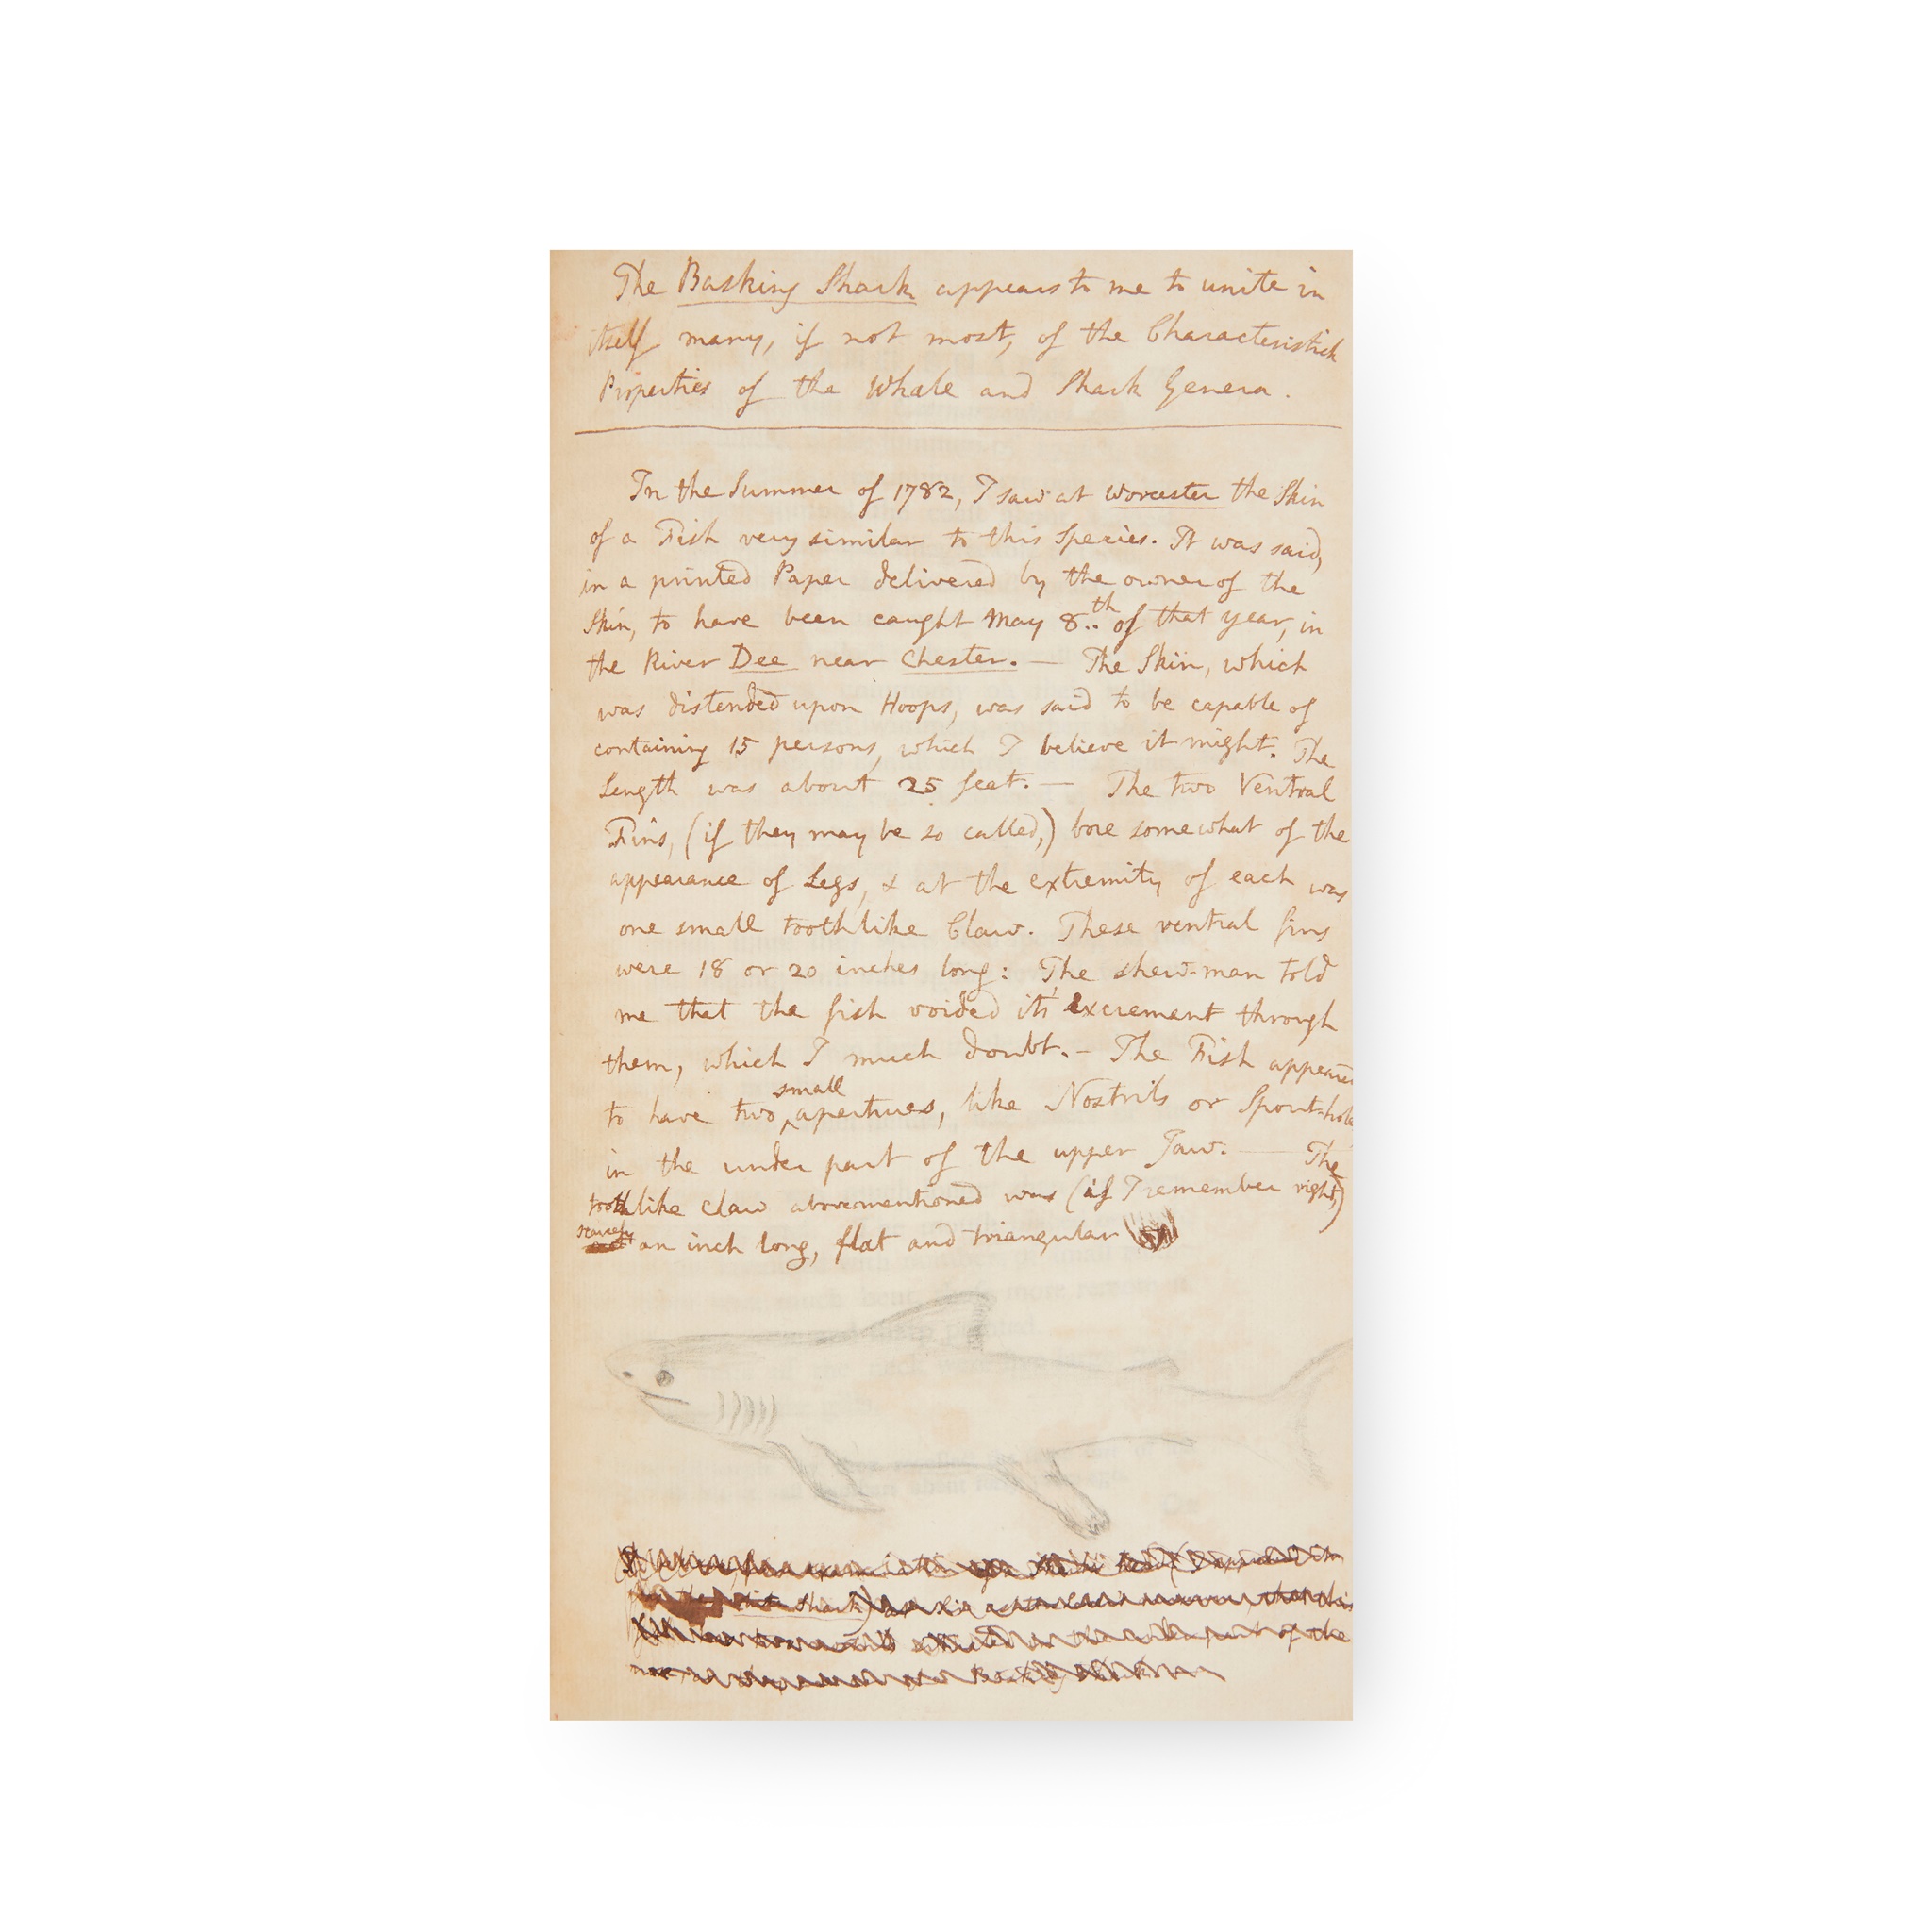 The Basking Shark appears to me to unite in
itself many, if not most, of the Characteristick
Properties of the Whale and Shark Genera.
In the Summer of 1782, I saw at Worcester the Skin
of a Fish very similar to this Species. It was said,
in a printed Paper delivered by the owner of the
Skin, to have been caught May 8th of that year, in
the River Dee near Chester. — The Skin, which
was distended upon Hoops, was said to be capable of
containing 15 persons, which I believe it might. The
Length was about 25 feet. — The two Ventral
Fins, (if they may be so called,) bore somewhat of the
appearance of Legs, & at the extremity of each was
one small toothlike Claw. These ventral fins
were 18 or 20 inches long: The shew-man told
me that the fish voided its excrement through
them, which I much doubt. — The Fish appeared
to have two small apertures, like Nostrils or Spout-hole
in the under part of the upper Jaw. — The
toothlike claw abovementioned was (if I remember right,)
scarcely an inch long, flat and triangular
Shark) that this
of the